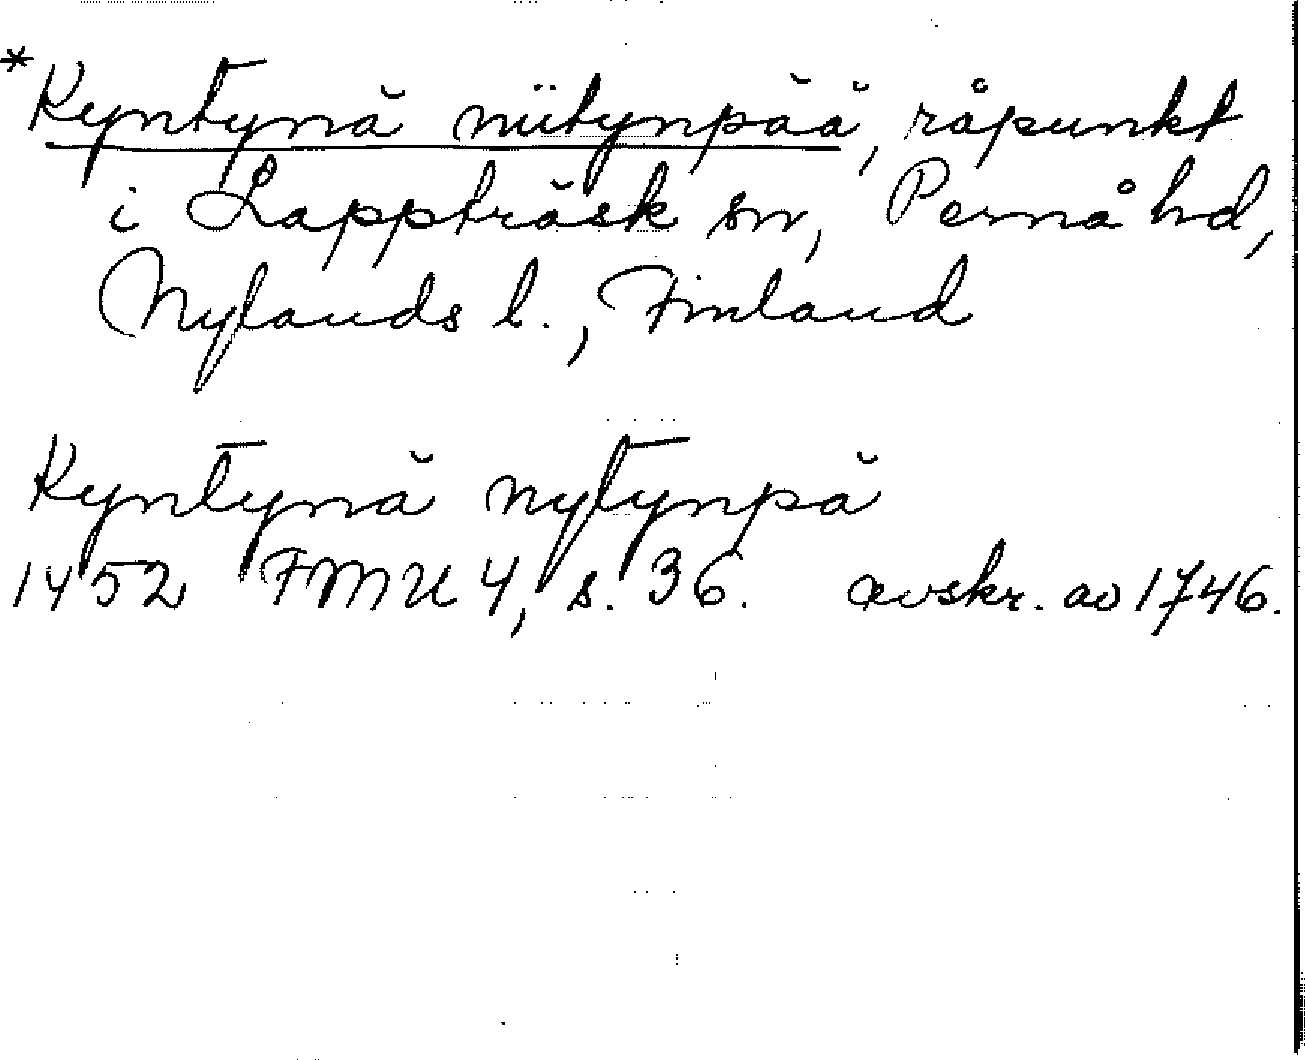 *Kyntynä niitynpää, råpunkt
i Lappträsk sn, Pernå hd,
Nylands l., Finland
Kyntynä nytynpä
1452 FMU 4, s. 36. avskr. av 1746.